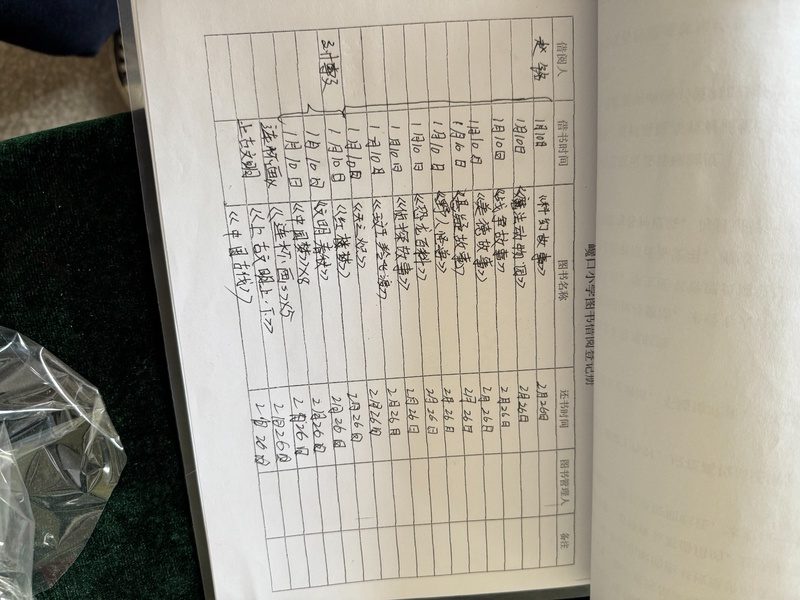 嵝口小学图书借阅登记册
借阅人 借书时间 图书名称 还书时间 图书管理人 备注
赵铭 1月10日 《科幻故事》 2月26日
1月10日 《魔法动物园》 2月26日
1月10日 《战争故事》 2月26日
1月10日 《美德故事》 2月26日
1月10日 故事》 2月26日
1月10日 《野人怪事》 2月26日
1月10日 《恐龙百科》 2月26日
1月10日 《侦探故事》 2月26日
1月10日 2月26日
1月10日 2月26日
1月10日 《红楼梦》 2月26日
1月10日 《文明 2月26日
1月10日 《中国梦》×8 2月26日
连环画 《连环画》×5 2月26日
上古文明 《上古文明上·下》
《中国古代》 2月26日